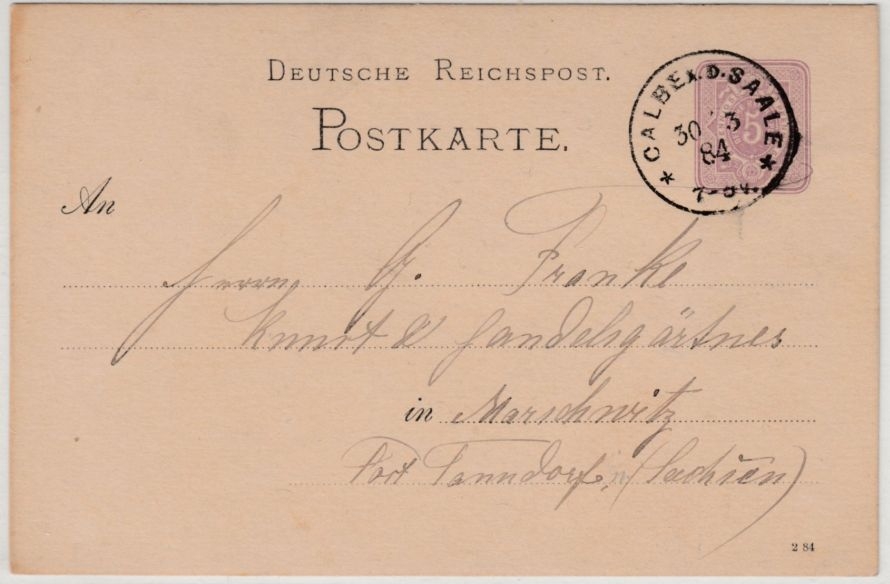 DEUTSCHE REICHSPOST.
POSTKARTE.
* CALBE A.D. SAALE *
30 3
84
7-8V.
5
An
Herrn G. Franke
Kunst & Handelsgärtner
in Marschwitz
Post Tanndorf, (Sachsen)
2 84